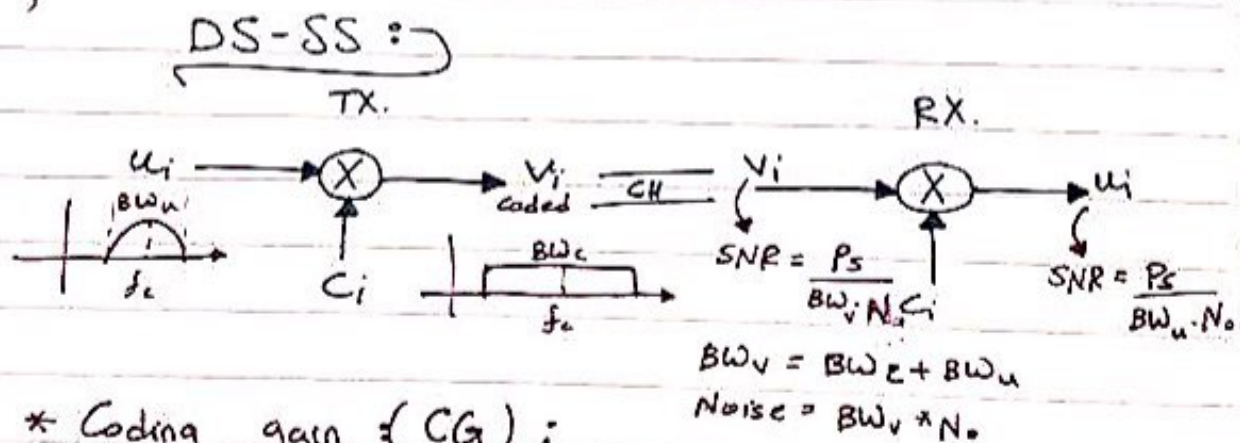 DS-SS :
TX.
RX.
ui X Vi CH Vi X ui
coded
BWu
fc
Ci
BWc
fc
SNR = Ps / BWv . N. Ci
SNR = Ps / BWu . No
BWv = BWc + BWu
Noise = BWv * No
* Coding gain (CG) :